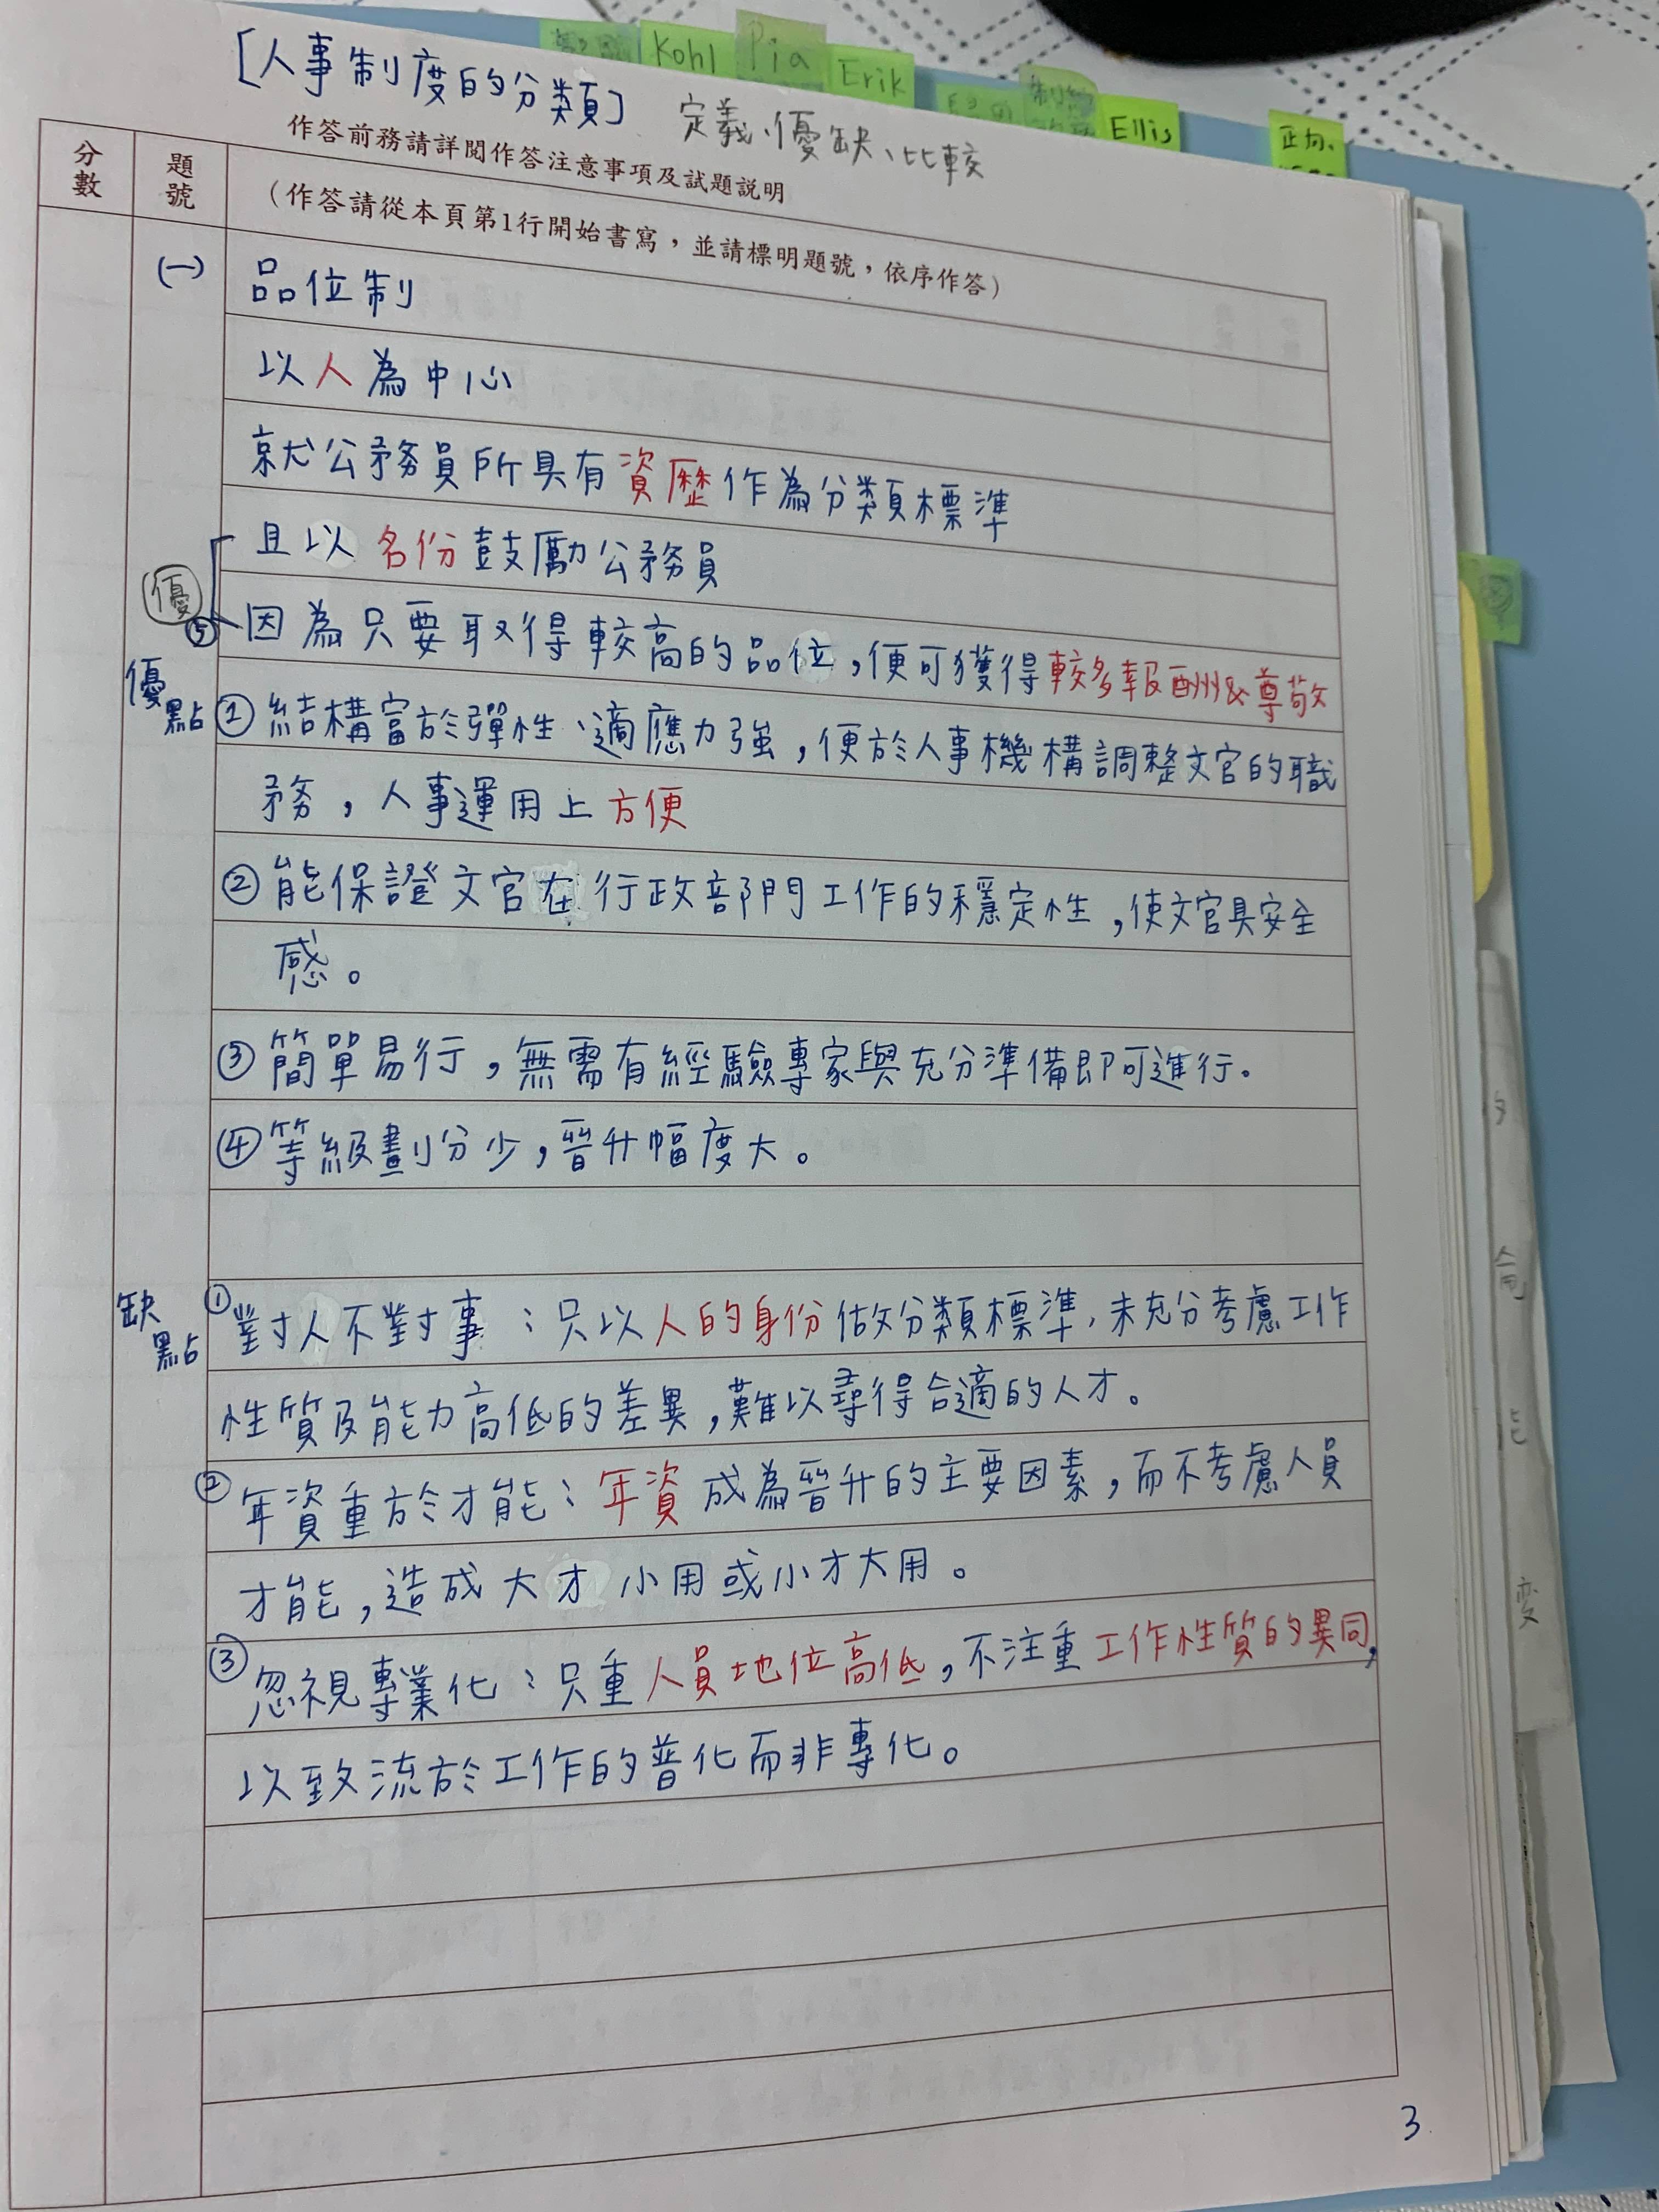 Kohl
Pia
Erik
Ellis
正向、
[人事制度的分類]
定義、優缺、比較
作答前務請詳閱作答注意事項及試題說明
分數
題號
(作答請從本頁第1行開始書寫，並請標明題號，依序作答)
(一) 品位制
以人為中心
就公務員所具有資歷作為分類標準
且以名份鼓勵公務員
優
⑤ 因為只要取得較高的品位，便可獲得較多報酬&尊敬
優點 ① 結構富於彈性、適應力強，便於人事機構調整文官的職
務，人事運用上方便
② 能保證文官在行政部門工作的穩定性，使文官具安全
感。
③ 簡單易行，無需有經驗專家與充分準備即可進行。
④ 等級劃分少，晉升幅度大。
缺點 ① 對人不對事：只以人的身份做分類標準，未充分考慮工作
性質及能力高低的差異，難以尋得合適的人才。
② 年資重於才能：年資成為晉升的主要因素，而不考慮人員
才能，造成大才小用或小才大用。
③ 忽視專業化：只重人員地位高低，不注重工作性質的異同，
以致流於工作的普化而非專化。
能
变
3